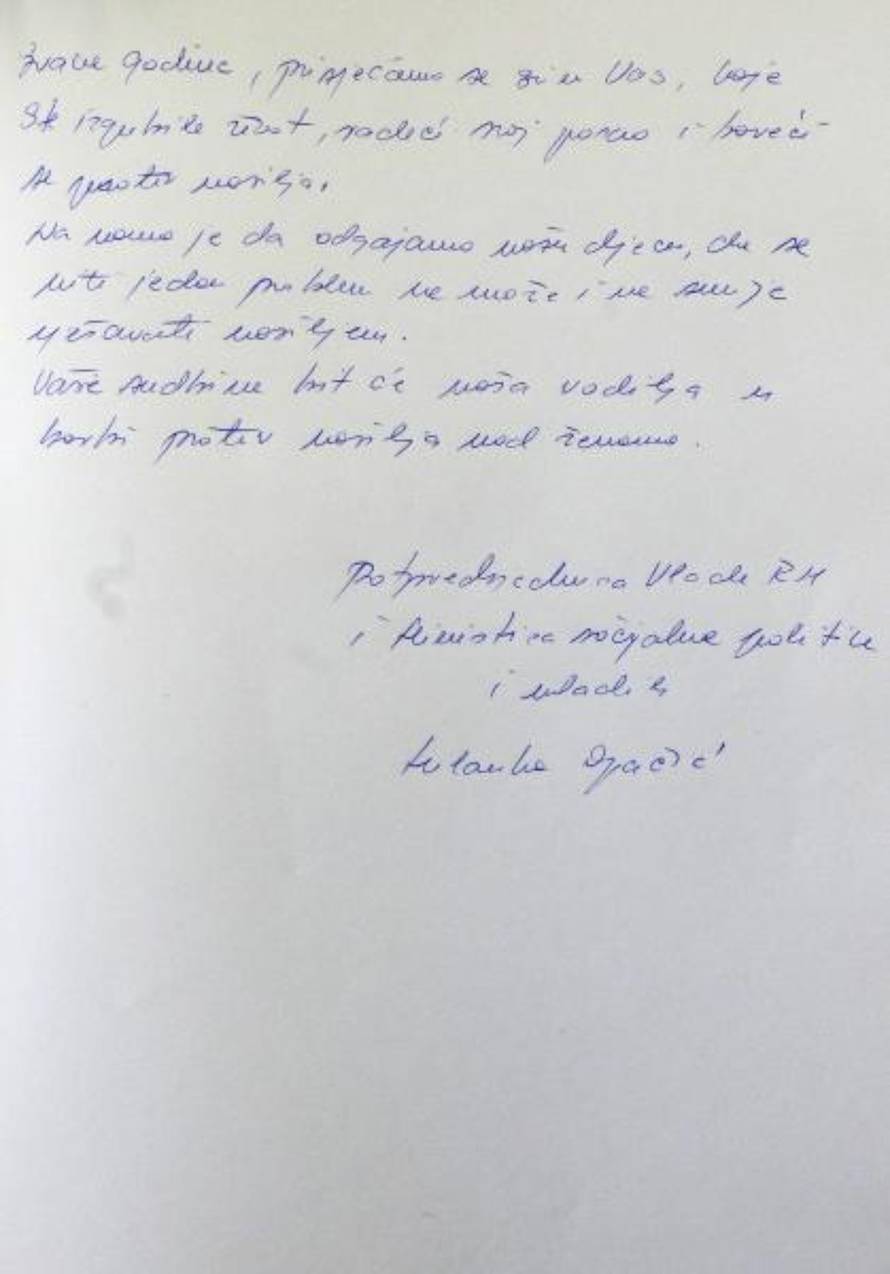 Svake godine, prisjećamo se svih Vas, koje
ste izgubile život, radeći svoj posao i boreći
se protiv nasilja.
Na nama je da odgajamo našu djecu, da se
niti jedan problem ne može i ne smije
rješavati nasiljem.
Vaše sudbine bit će naša vodilja u
borbi protiv nasilja nad ženama.
Potpredsjednica Vlade RH
i Ministrica socijalne politike
i mladih
Milanka Opačić